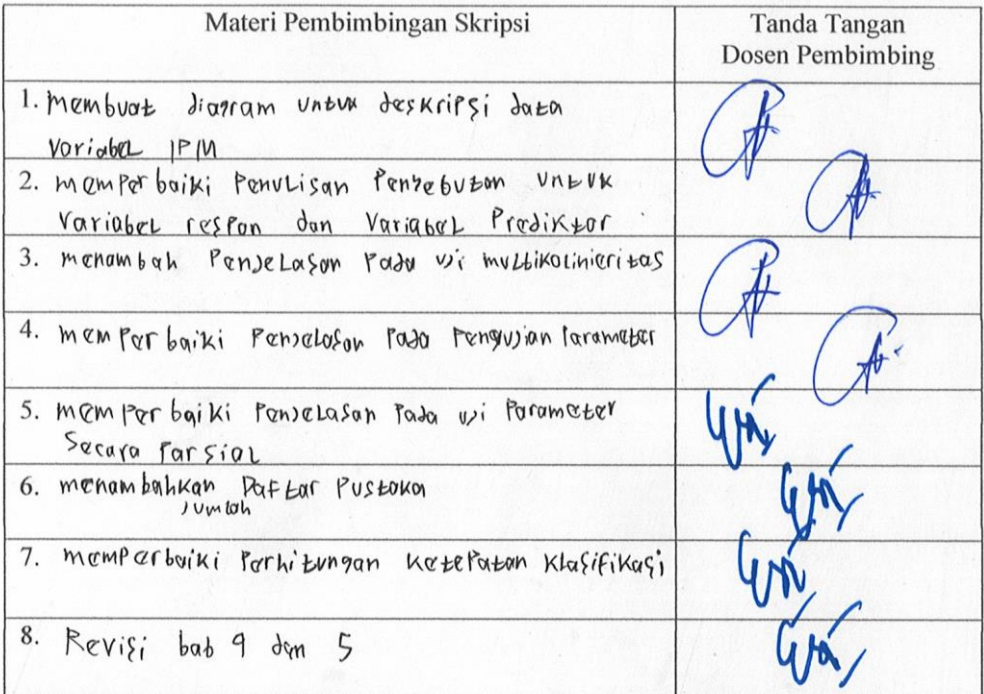 Materi Pembimbingan Skripsi
Tanda Tangan
Dosen Pembimbing
1. Membuat diagram untuk deskripsi data
Variabel IPM
2. memperbaiki Penulisan Penyebutan untuk
Variabel respon dan Variabel Prediktor
3. menambah Penjelasan Pada uji multikolinieritas
4. memperbaiki Penjelasan Pada Pengujian Parameter
5. memperbaiki Penjelasan Pada uji Parameter
Secara Parsial
6. menambahkan Daftar Pustaka
Jumlah
7. memperbaiki Perhitungan Ketepatan Klasifikasi
8. Revisi bab 4 dan 5